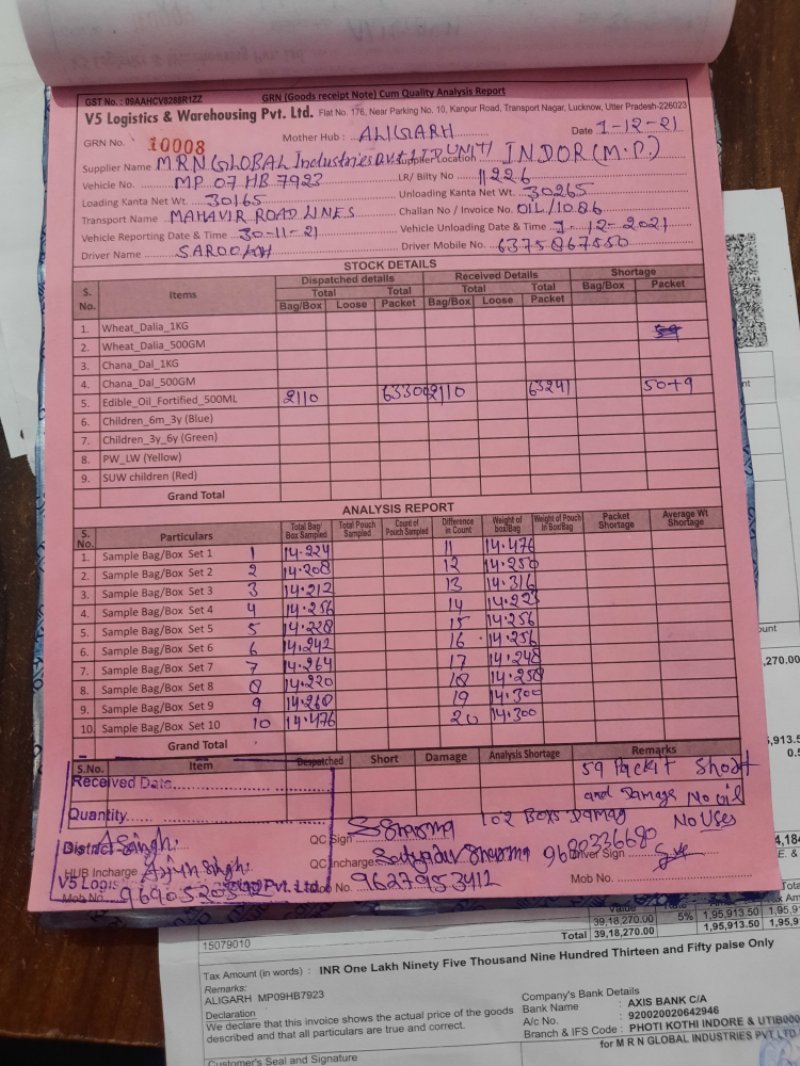 GST No. : 09AAHCV8288R1ZZ GRN (Goods receipt Note) Cum Quality Analysis Report
V5 Logistics & Warehousing Pvt. Ltd. Flat No. 176, Near Parking No. 10, Kanpur Road, Transport Nagar, Lucknow, Utter Pradesh-226023
GRN No. 10008 Mother Hub : ALIGARH Date 1-12-21
Supplier Name MRN GLOBAL Industries PVT LTD UNIT I Supplier Location INDOR (M.P.)
Vehicle No. MP 07 HB 7923 LR/ Bilty No 11226
Loading Kanta Net Wt. 30165 Unloading Kanta Net Wt. 30265
Transport Name MAHAVIR ROAD LINES Challan No / Invoice No. OIL/1086
Vehicle Reporting Date & Time 30-11-21 Vehicle Unloading Date & Time 1-12-2021
Driver Name Driver Mobile No. 6375867550
STOCK DETAILS
S. No. Items Dispatched details Received Details Shortage
Total Total Total Total Bag/Box Packet
Bag/Box Loose Packet Bag/Box Loose Packet
1. Wheat_Dalia_1KG
2. Wheat_Dalia_500GM
3. Chana_Dal_1KG
4. Chana_Dal_500GM
5. Edible_Oil_Fortified_500ML 2110 63300 2110 63241 50+9
6. Children_6m_3y (Blue)
7. Children_3y_6y (Green)
8. PW_LW (Yellow)
9. SUW children (Red)
Grand Total
ANALYSIS REPORT
S. No. Particulars Total Bag/ Box Sampled Total Pouch Sampled Count of Pouch Sampled Difference in Count Weight of box/Bag Weight of Pouch In Box/Bag Packet Shortage Average Wt Shortage
1. Sample Bag/Box Set 1 1 14.224 11 14.476
2. Sample Bag/Box Set 2 2 14.208 12 14.250
3. Sample Bag/Box Set 3 3 14.212 13 14.316
4. Sample Bag/Box Set 4 4 14.256 14 14.223
5. Sample Bag/Box Set 5 5 14.228 15 14.256
6. Sample Bag/Box Set 6 6 14.242 16 14.256
7. Sample Bag/Box Set 7 7 14.264 17 14.248
8. Sample Bag/Box Set 8 8 14.220 18 14.250
9. Sample Bag/Box Set 9 9 14.260 19 14.300
10. Sample Bag/Box Set 10 10 14.476 20 14.300
Grand Total
S.No. Item Despatched Short Damage Analysis Shortage Remarks
Received Date 59 Packit Short
and Damage No oil
Quantity 102 Boxs Damag No Uses
District QC Sign Sharma
HUB Incharge Arjun Singh QC Incharge Satyadev Sharma 9680336680 Driver Sign
V5 Logis Pvt. Ltd. Mob No. 9627953412 Mob No.
Mob No.
39,18,270.00 5% 1,95,913.50
15079010 Total 39,18,270.00 1,95,913.50
Tax Amount (in words) : INR One Lakh Ninety Five Thousand Nine Hundred Thirteen and Fifty paise Only
Remarks:
ALIGARH MP09HB7923
Company's Bank Details
Declaration Bank Name : AXIS BANK C/A
We declare that this invoice shows the actual price of the goods A/c No. : 920020020642946
described and that all particulars are true and correct. Branch & IFS Code : PHOTI KOTHI INDORE & UTIB000
for M R N GLOBAL INDUSTRIES PVT LTD
Customer's Seal and Signature